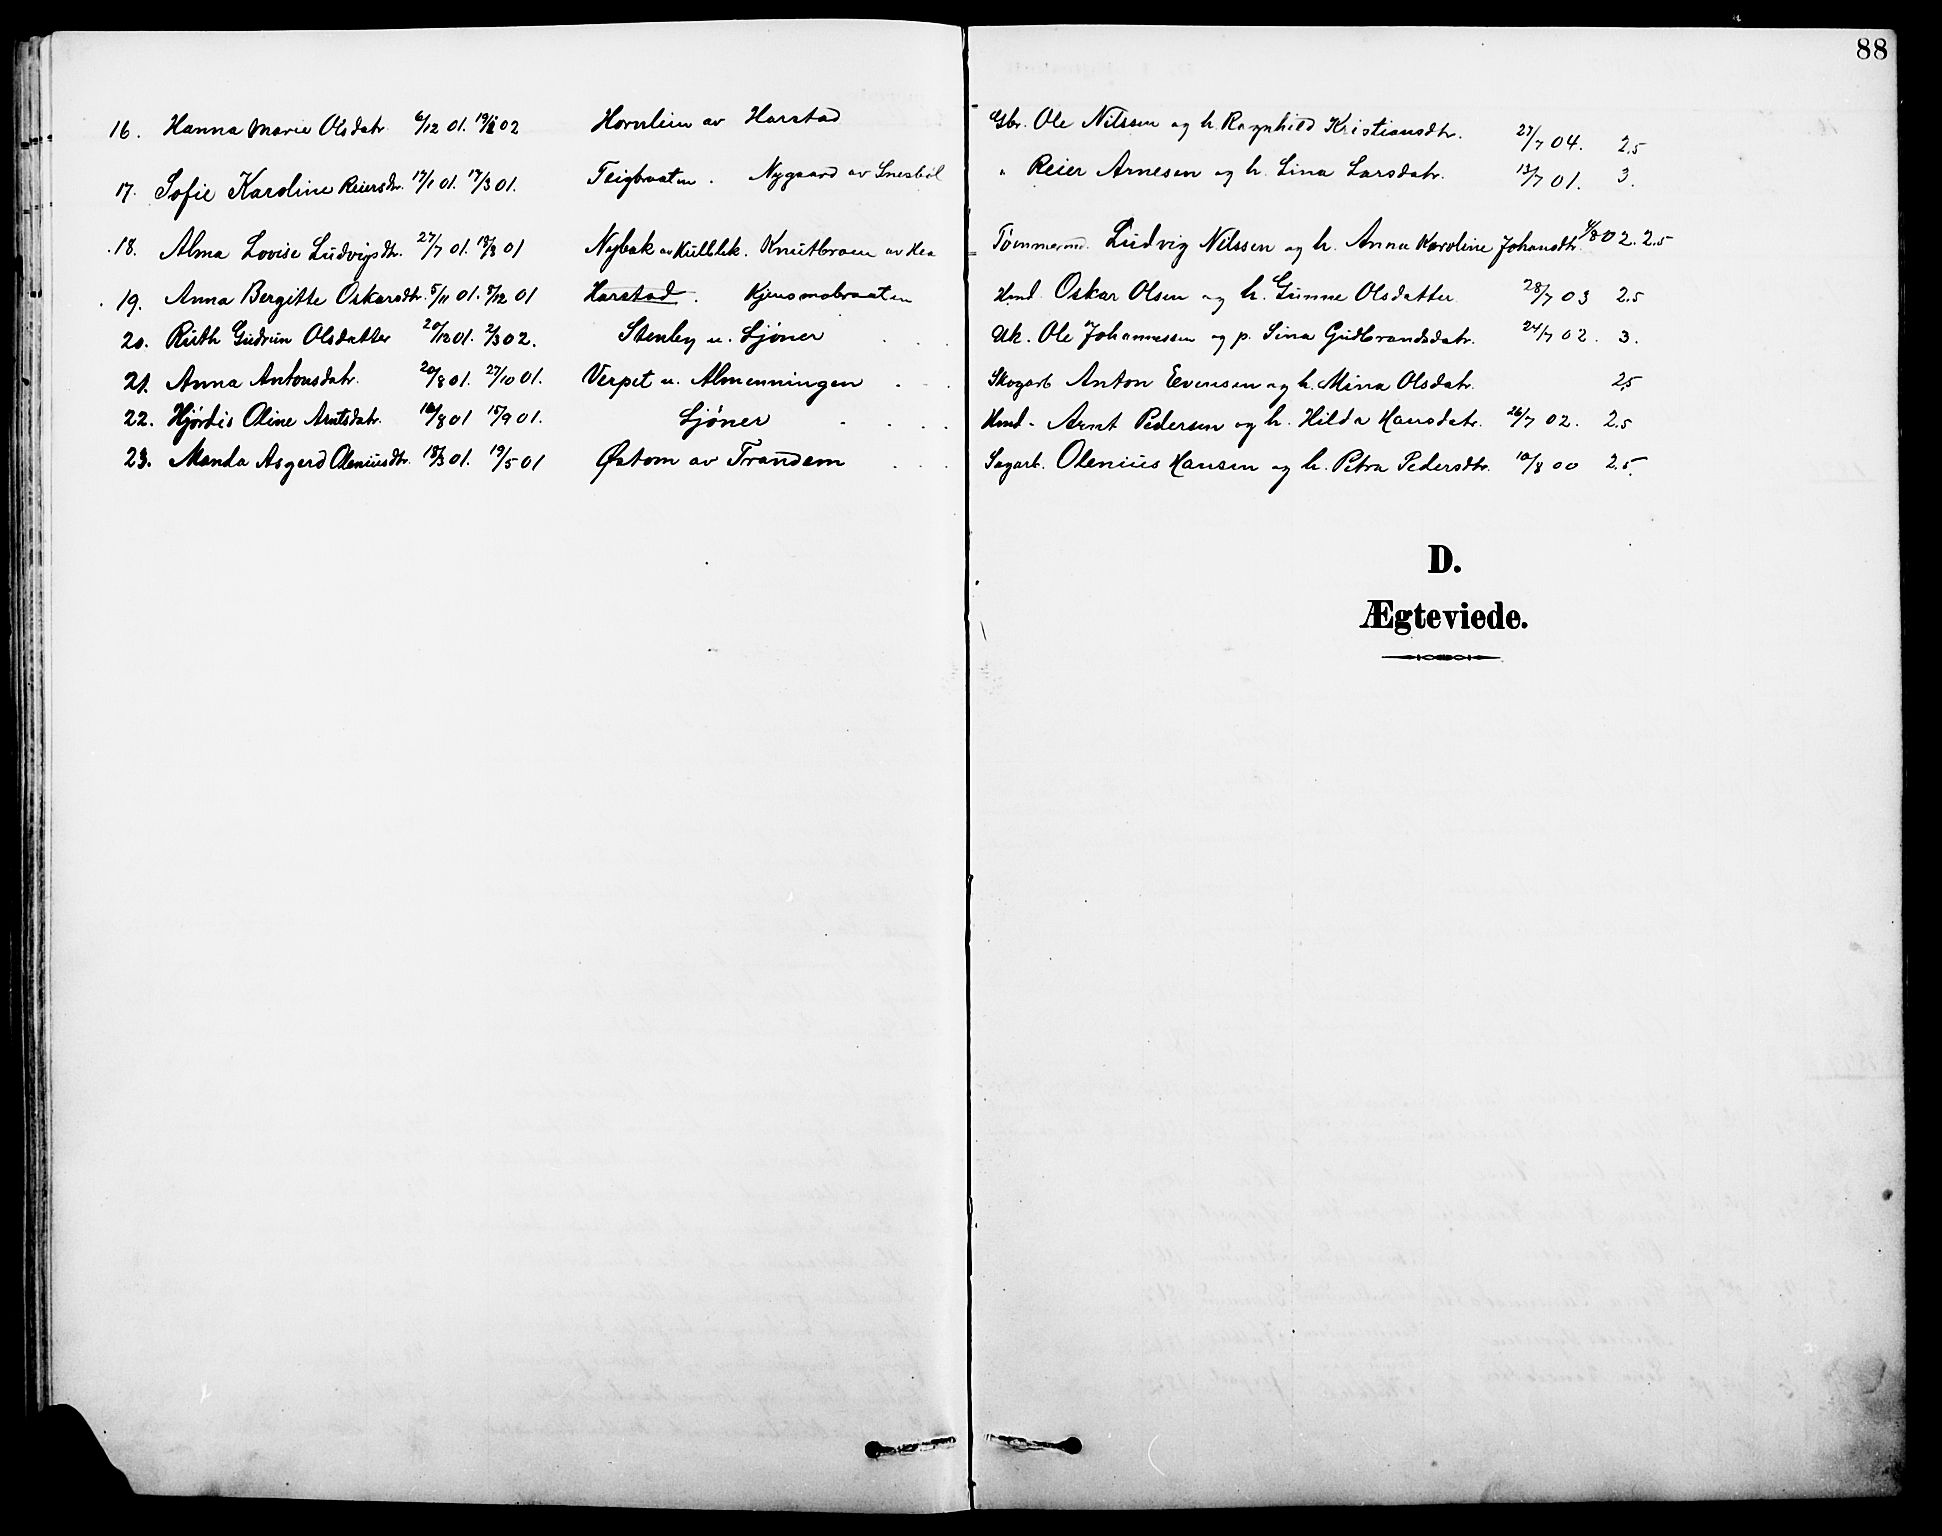 88
16. Hanna Marie Olsdatr. 6/12 01. 19/1 02 Hornlien av Harstad Gbr. Ole Nilssen og h. Ragnhild Kristiansdtr. 27/7 04. 2.5
17. Sofie Karoline Reiersdtr. 17/1 01. 17/3 01. Teigbraaten. Nygaard av Snesbøl " Reier Arnesen og h. Lina Larsdatr. 13/7 01. 3.
18. Alma Lovise Ludvigsdtr. 27/7 01. 18/8 01 Nybak av Kulblik. Knutbraen av Hea Tømmermd. Ludvig Nilssen og h. Anna Karoline Johansdtr. 4/8 02. 2.5
19. Anna Bergitte Oskarsdtr. 5/11 01. 8/12 01 Harstad. Kjensmobraaten Hmd. Oskar Olsen og h. Gunne Olsdatter 28/7 03 2.5
20. Ruth Gudrun Olsdatter 20/12 01. 2/3 02. Stenby u. Sjøner Uk. Ole Johannessen og p. Lina Gudbrandsdatr. 24/7 02. 3.
21. Anna Antonsdatr. 20/8 01. 27/10 01. Verpet u. Almenningen Skogarb Anton Evensen og h. Mina Olsdatr. 25
22. Hjørdis Oline Arntsdatr. 10/8 01 15/9 01. Sjøner Hmd. Arnt Pedersen og h. Hilda Hansdatr. 26/7 02. 2.5
23. Manda Asgerd Oleniusdtr. 18/3 01. 19/5 01 Østom av Trandem Sagarb. Olenius Hansen og h. Petra Pedersdtr. 10/8 00 2.5.
D.
Ægteviede.